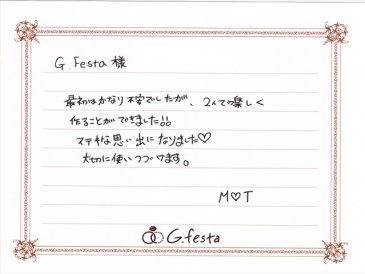 G.Festa 様
最初はかなり不安でしたが、2人で楽しく
作ることができました!!
ステキな思い出になりました♡
大切に使いつづけます。
M♡T
G.festa